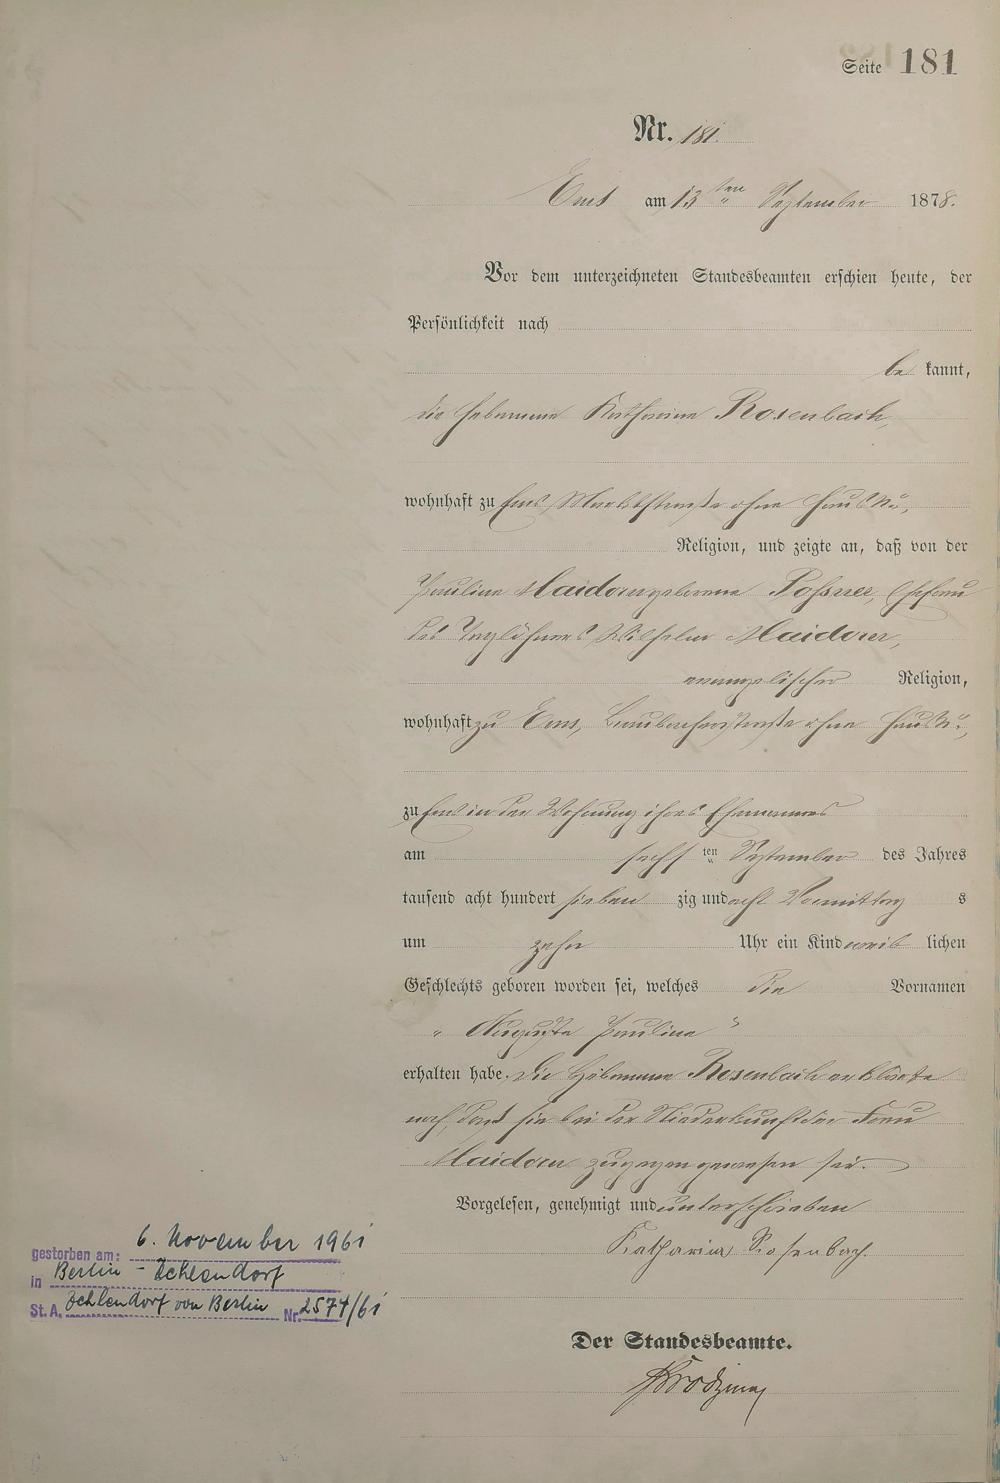 Seite 181
Nr. 181.
Ems am 13ten September 1878.
Vor dem unterzeichneten Standesbeamten erschien heute, der
Persönlichkeit nach
be kannt,
die Hebamme Katharina Rosenbach,
wohnhaft zu Ems, Marktstraße ohne Haus No,
Religion, und zeigte an, daß von der
Pauline Maidorn geborene Poßner, Ehefrau
des Taglöhners Wilhelm Maidorn,
evangelischer Religion,
wohnhaft zu Ems, ohne Haus No,
zu Ems in der Wohnung ihres Ehemannes
am sechsten September des Jahres
tausend acht hundert sieben zig und acht Vormittag s
um zehn Uhr ein Kind weib lichen
Geschlechts geboren worden sei, welches die Vornamen
„ Auguste Pauline "
erhalten habe. Die Hebamme Rosenbach erklärte
noch, daß sie bei der Niederkunft der Frau
Maidorn zugegen gewesen sei.
Vorgelesen, genehmigt und unterschrieben
Katharina Rosenbach.
gestorben am: 6. November 1961
in Berlin - Zehlendorf
St. A. Zehlendorf von Berlin Nr. 2574/61
Der Standesbeamte.